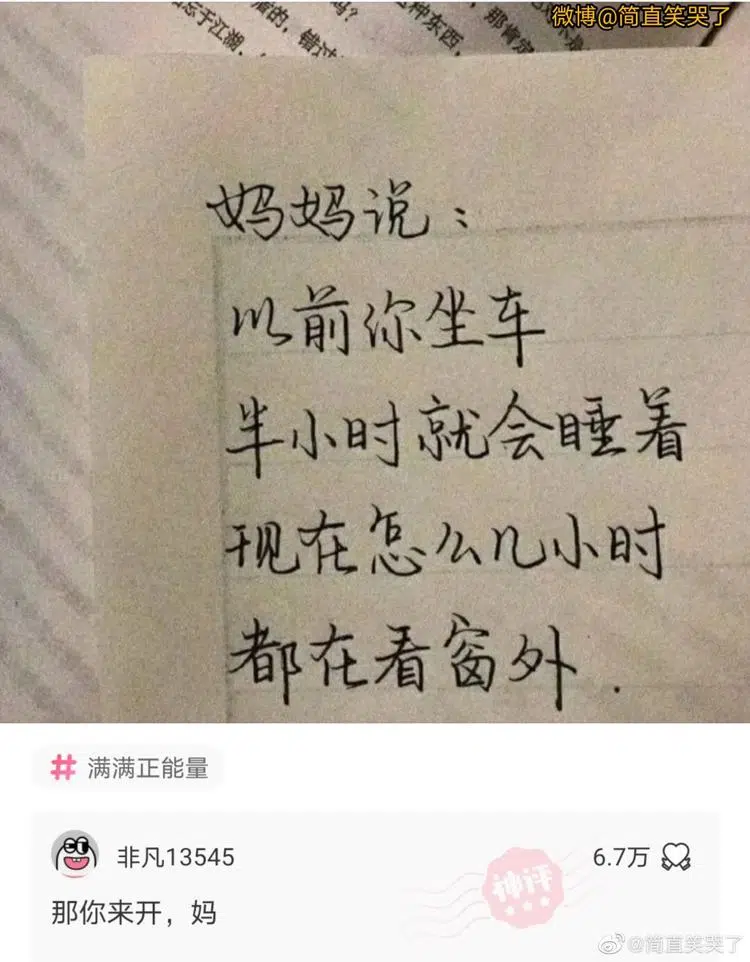 微博@简直笑哭了
妈妈说：
以前你坐车
半小时就会睡着
现在怎么几小时
都在看窗外.
# 满满正能量
非凡13545
6.7万
那你来开，妈
神评
@简直笑哭了